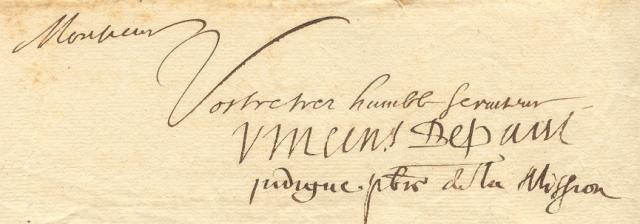 Monsieur
Vostre tres humble seruiteur
Vincens Depaul
indigne pbre de la Mission